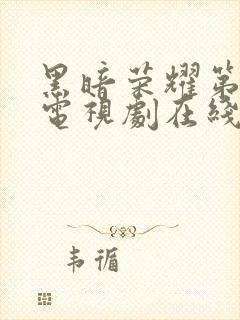 黑暗荣耀第
電視劇在綫
韦循